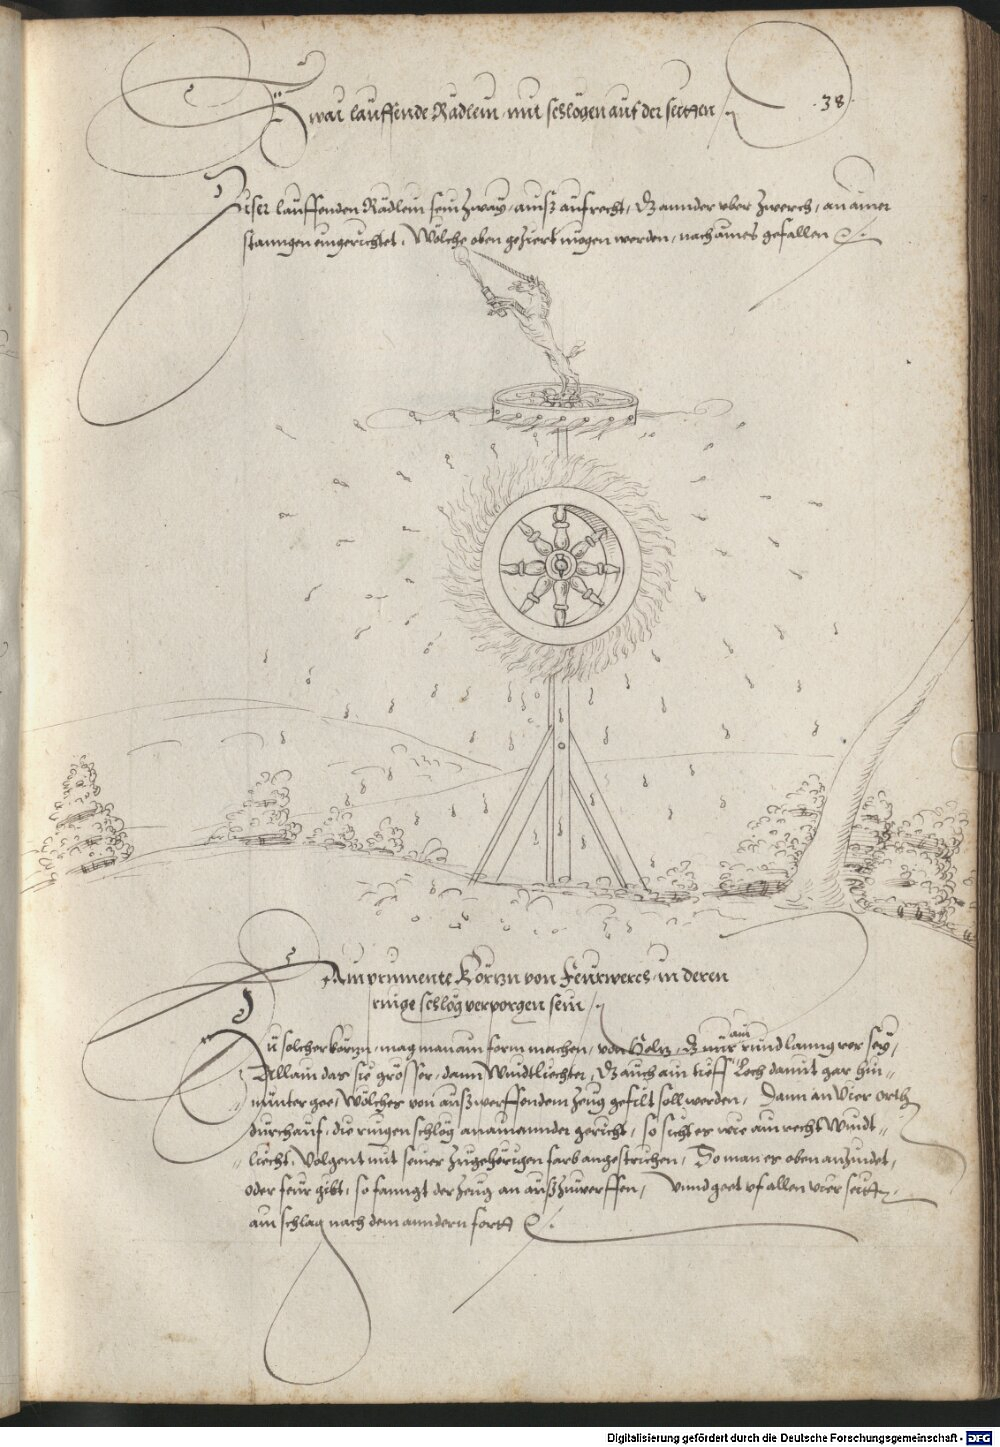 Zway lauffende Rädlein mit schlögen auf der seitten /
.38.
Diser lauffenden Rädlein sein zway, ains aufrecht, das annder vber zwerch, an ainer
stanngen eingerichtet. Wölche oben geziert mögen werden, nach aines gefallen
Ain prinnente Körtzn von Feurwerch, in deren
ringe schlög verporgen sein /
Zu solcher körtzn, mag man ain form machen, von Holtz, das nur ain rund lanng ror sey,
Allain das sie grösser, dann Windtliechter, das auch ain tieff Loch damit gar hin-
nunter gee, Wölches von außwerffendem zeug gefilt soll werden, Dann an vier orth
durchauf, die ringen schlög an ainannder gericht, so sicht es wie ain recht Windt-
liecht. Volgent mit seiner zugehörigen farb angestrichen, So man es oben anzündet,
oder feur gibt, so fanngt der zeug an außzuwerffen, Vnnd geet vf allen vier seitten,
ain schlag nach dem anndern fortt
Digitalisierung gefördert durch die Deutsche Forschungsgemeinschaft - DFG